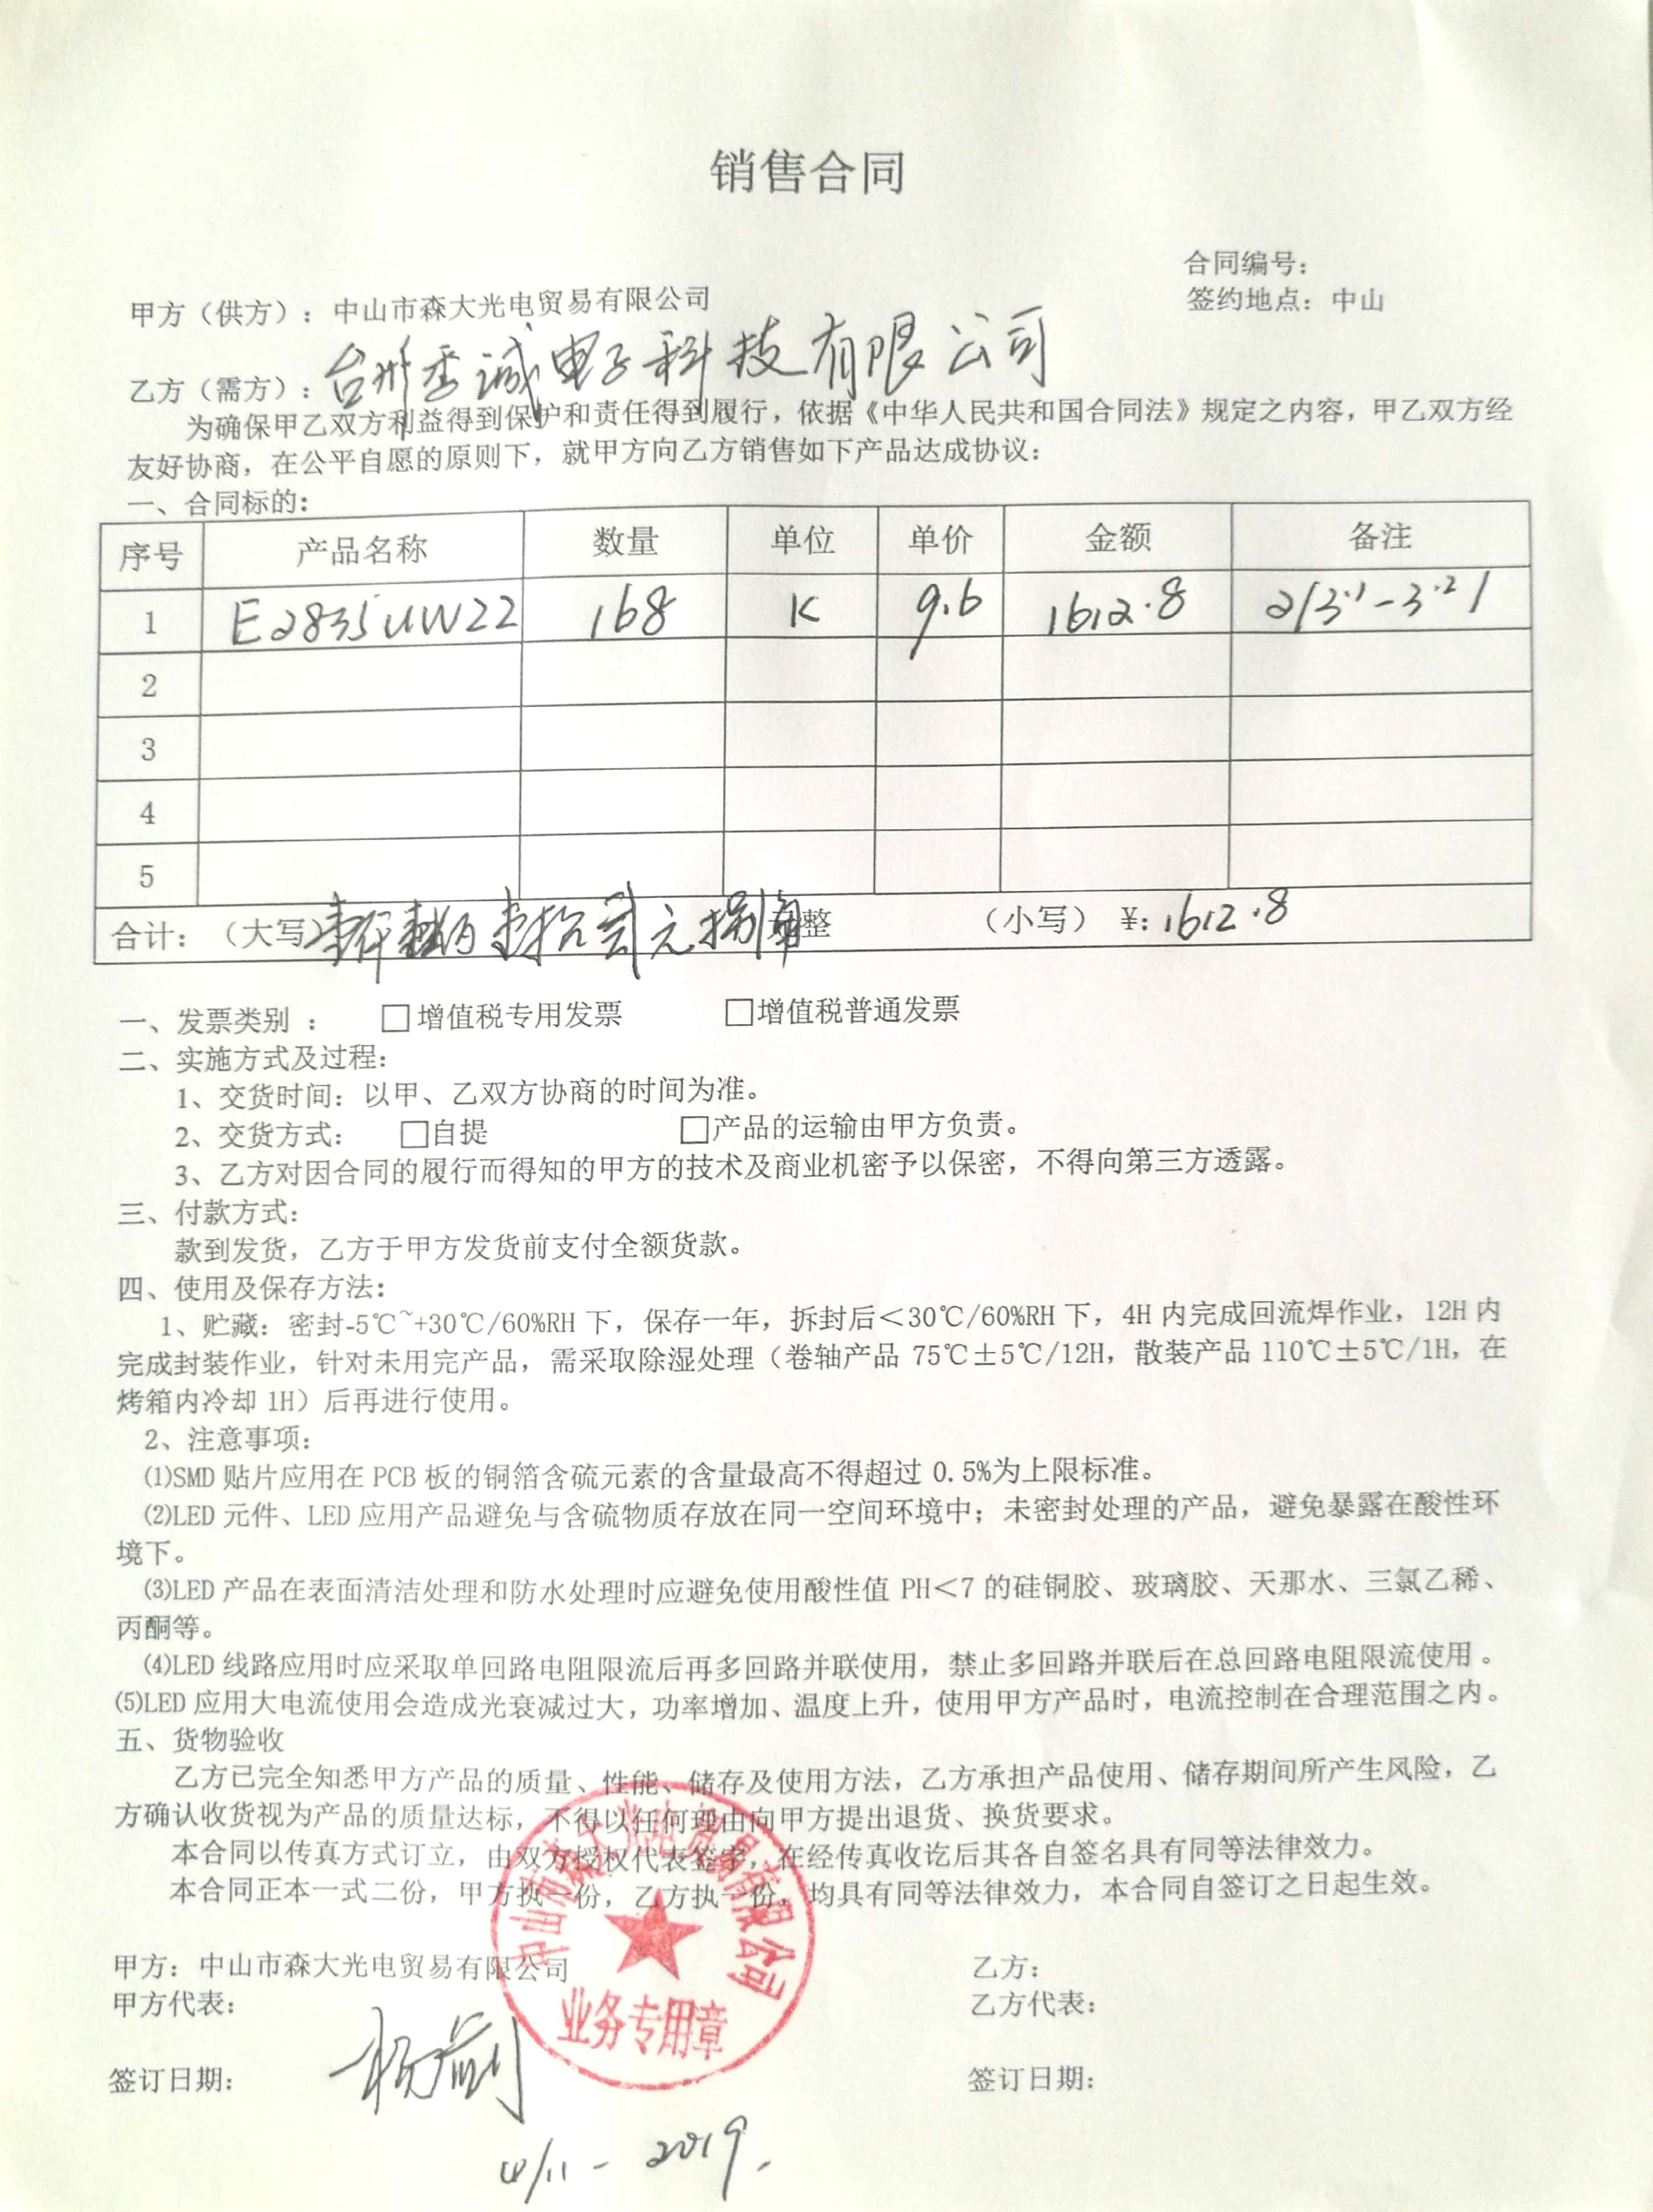 销售合同
合同编号：
甲方（供方）：中山市森大光电贸易有限公司
签约地点：中山
乙方（需方）：台州秀诚电子科技有限公司
为确保甲乙双方利益得到保护和责任得到履行，依据《中华人民共和国合同法》规定之内容，甲乙双方经
友好协商，在公平自愿的原则下，就甲方向乙方销售如下产品达成协议：
一、合同标的：
序号 产品名称 数量 单位 单价 金额 备注
1 E2835UW22 168 K 9.6 1612.8 2/3.1-3.2/
2
3
4
5
合计：（大写）壹仟陆佰壹拾贰元捌角整 （小写）¥：1612.8
一、发票类别 ： □增值税专用发票 □增值税普通发票
二、实施方式及过程：
1、交货时间：以甲、乙双方协商的时间为准。
2、交货方式： □自提 □产品的运输由甲方负责。
3、乙方对因合同的履行而得知的甲方的技术及商业机密予以保密，不得向第三方透露。
三、付款方式：
款到发货，乙方于甲方发货前支付全额货款。
四、使用及保存方法：
1、贮藏：密封-5℃~+30℃/60%RH 下，保存一年，拆封后＜30℃/60%RH 下，4H 内完成回流焊作业，12H 内
完成封装作业，针对未用完产品，需采取除湿处理（卷轴产品 75℃±5℃/12H，散装产品 110℃±5℃/1H，在
烤箱内冷却 1H）后再进行使用。
2、注意事项：
⑴SMD 贴片应用在 PCB 板的铜箔含硫元素的含量最高不得超过 0.5%为上限标准。
⑵LED 元件、LED 应用产品避免与含硫物质存放在同一空间环境中；未密封处理的产品，避免暴露在酸性环
境下。
⑶LED 产品在表面清洁处理和防水处理时应避免使用酸性值 PH＜7 的硅铜胶、玻璃胶、天那水、三氯乙稀、
丙酮等。
⑷LED 线路应用时应采取单回路电阻限流后再多回路并联使用，禁止多回路并联后在总回路电阻限流使用。
⑸LED 应用大电流使用会造成光衰减过大，功率增加、温度上升，使用甲方产品时，电流控制在合理范围之内。
五、货物验收
乙方已完全知悉甲方产品的质量、性能、储存及使用方法，乙方承担产品使用、储存期间所产生风险，乙
方确认收货视为产品的质量达标，不得以任何理由向甲方提出退货、换货要求。
本合同以传真方式订立，由双方授权代表签字，在经传真收讫后其各自签名具有同等法律效力。
本合同正本一式二份，甲方执一份，乙方执一份，均具有同等法律效力，本合同自签订之日起生效。
中山市森大光电贸易有限公司
业务专用章
甲方：中山市森大光电贸易有限公司 乙方：
甲方代表： 乙方代表：
签订日期： 签订日期：
2019.